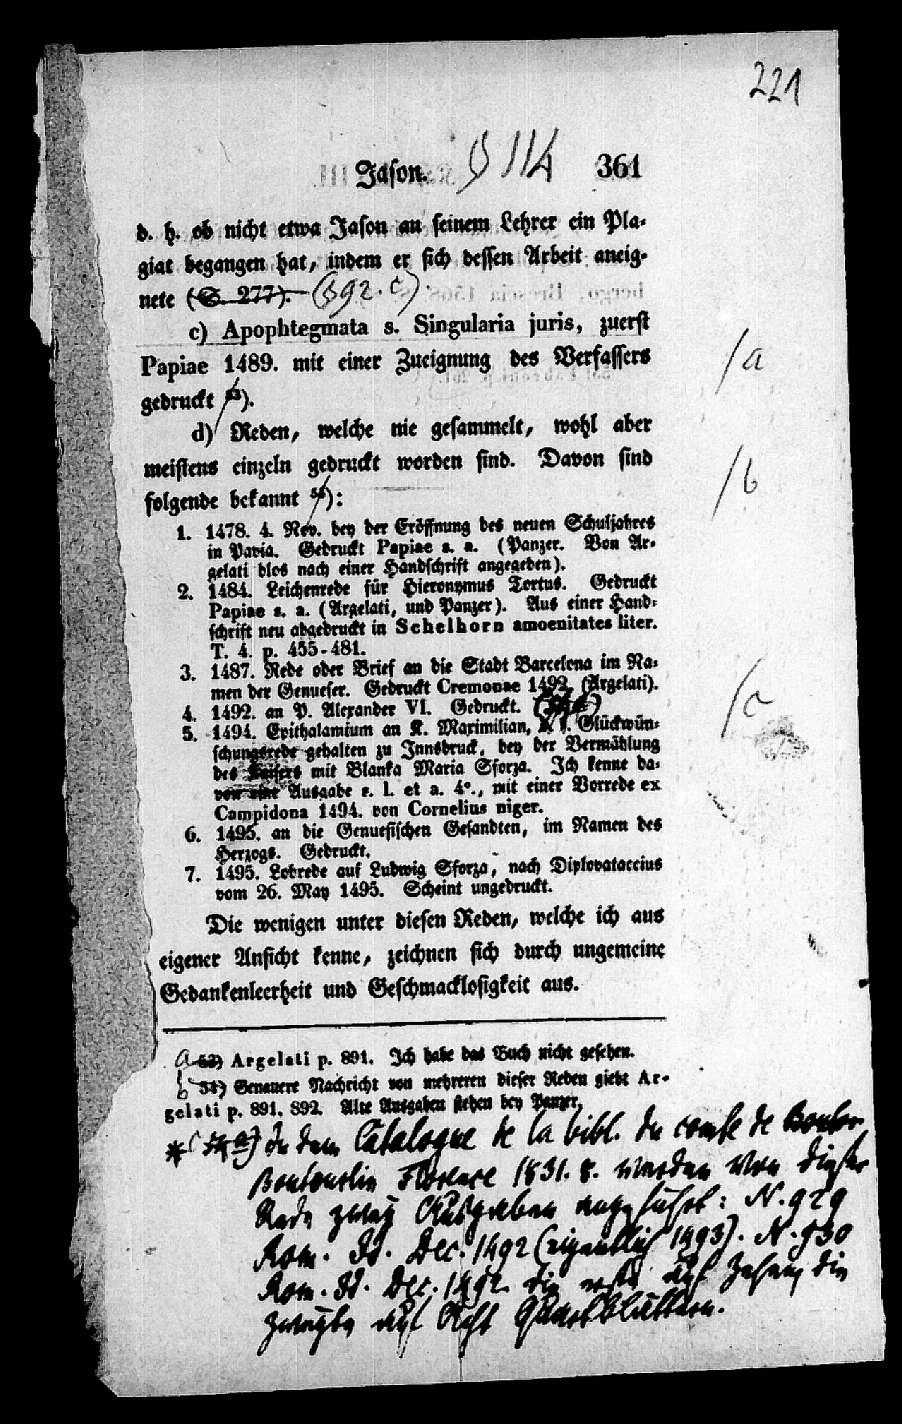 221
Jason. § 114 361
d. h. ob nicht etwa Jason an seinem Lehrer ein Pla-
giat begangen hat, indem er sich dessen Arbeit aneig-
nete (S. 277). (§ 92. c)
c) Apophtegmata s. Singularia juris, zuerst
Papiae 1489. mit einer Zueignung des Verfassers /a
gedruckt 53).
d) Reden, welche nie gesammelt, wohl aber
meistens einzeln gedruckt worden sind. Davon sind /b
folgende bekannt 54):
1. 1478. 4. Nov. bey der Eröffnung des neuen Schuljahres
in Pavia. Gedruckt Papiae s. a. (Panzer. Von Ar-
gelati blos nach einer Handschrift angegeben).
2. 1484. Leichenrede für Hieronymus Tortus. Gedruckt
Papiae s. a. (Argelati, und Panzer). Aus einer Hand-
schrift neu abgedruckt in Schelhorn amoenitates liter.
T. 4. p. 455-481.
3. 1487. Rede oder Brief an die Stadt Barcelona im Na-
men der Genueser. Gedruckt Cremonae 1492. (Argelati).
4. 1492. an P. Alexander VI. Gedruckt. /c
5. 1494. Epithalamium an K. Maximilian, d. i. Glückwün-
schungsrede gehalten zu Innsbruck, bey der Vermählung
des Kaisers mit Blanka Maria Sforza. Ich kenne da-
von eine Ausgabe s. l. et a. 4°., mit einer Vorrede ex
Campidona 1494. von Cornelius niger.
6. 1495. an die Genuesischen Gesandten, im Namen des
Herzogs. Gedruckt.
7. 1495. Lobrede auf Ludwig Sforza, nach Diplovataccius
vom 26. May 1495. Scheint ungedruckt.
Die wenigen unter diesen Reden, welche ich aus
eigener Ansicht kenne, zeichnen sich durch ungemeine
Gedankenleerheit und Geschmacklosigkeit aus.
a 53) Argelati p. 891. Ich habe das Buch nicht gesehen.
b 54) Genauere Nachricht von mehreren dieser Reden giebt Ar-
gelati p. 891. 892. Alte Ausgaben stehen bey Panzer.
* 54 a) In dem Catalogue de la bibl. du comte de
Boutourlin Florence 1831. 8. werden von dieser
Rede zwey Ausgaben angeführt: N. 929
Rom. Id. Dec. 1492 (eigentlich 1493). N. 930
Rom. Id. Dec. 1492. die erste auf Zehen die
zweyte auf Acht Quartblättern.